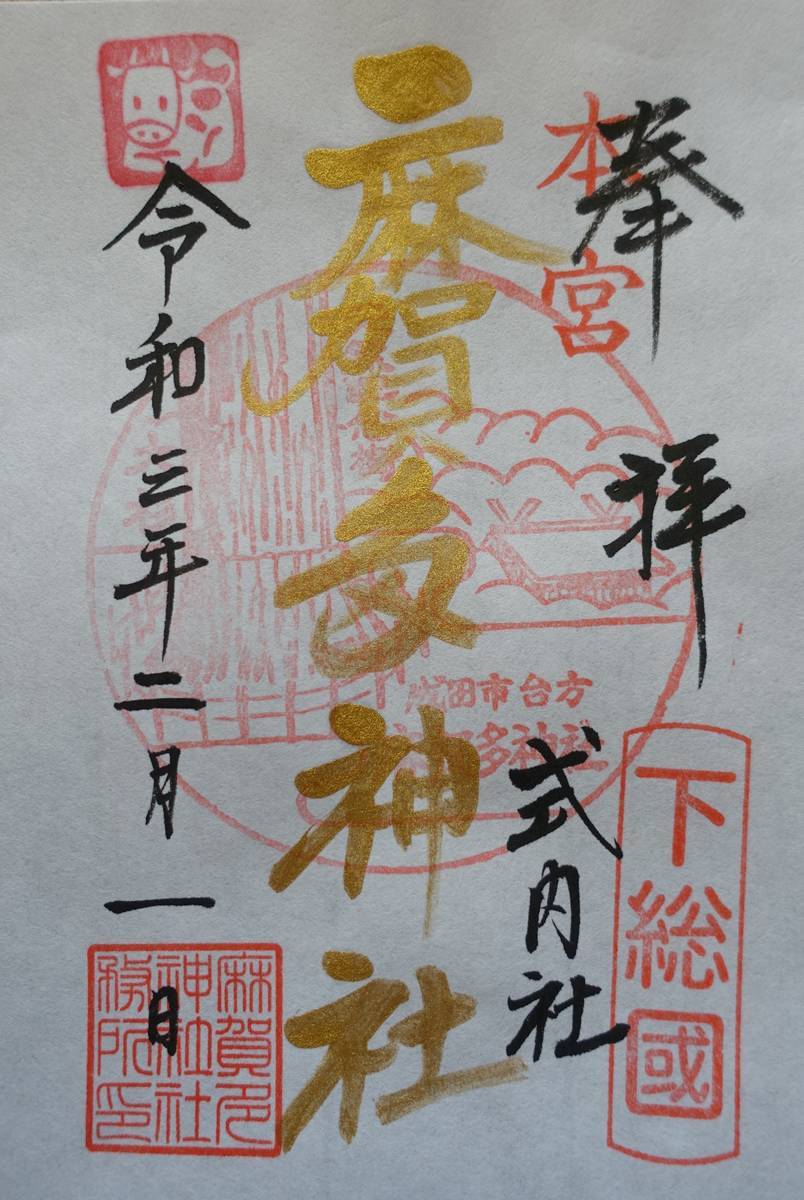 奉拝
本宮
式内社
下総國
麻賀多神社
成田市台方
麻賀多神社
令和三年二月一日
麻賀多
神社社
務所印